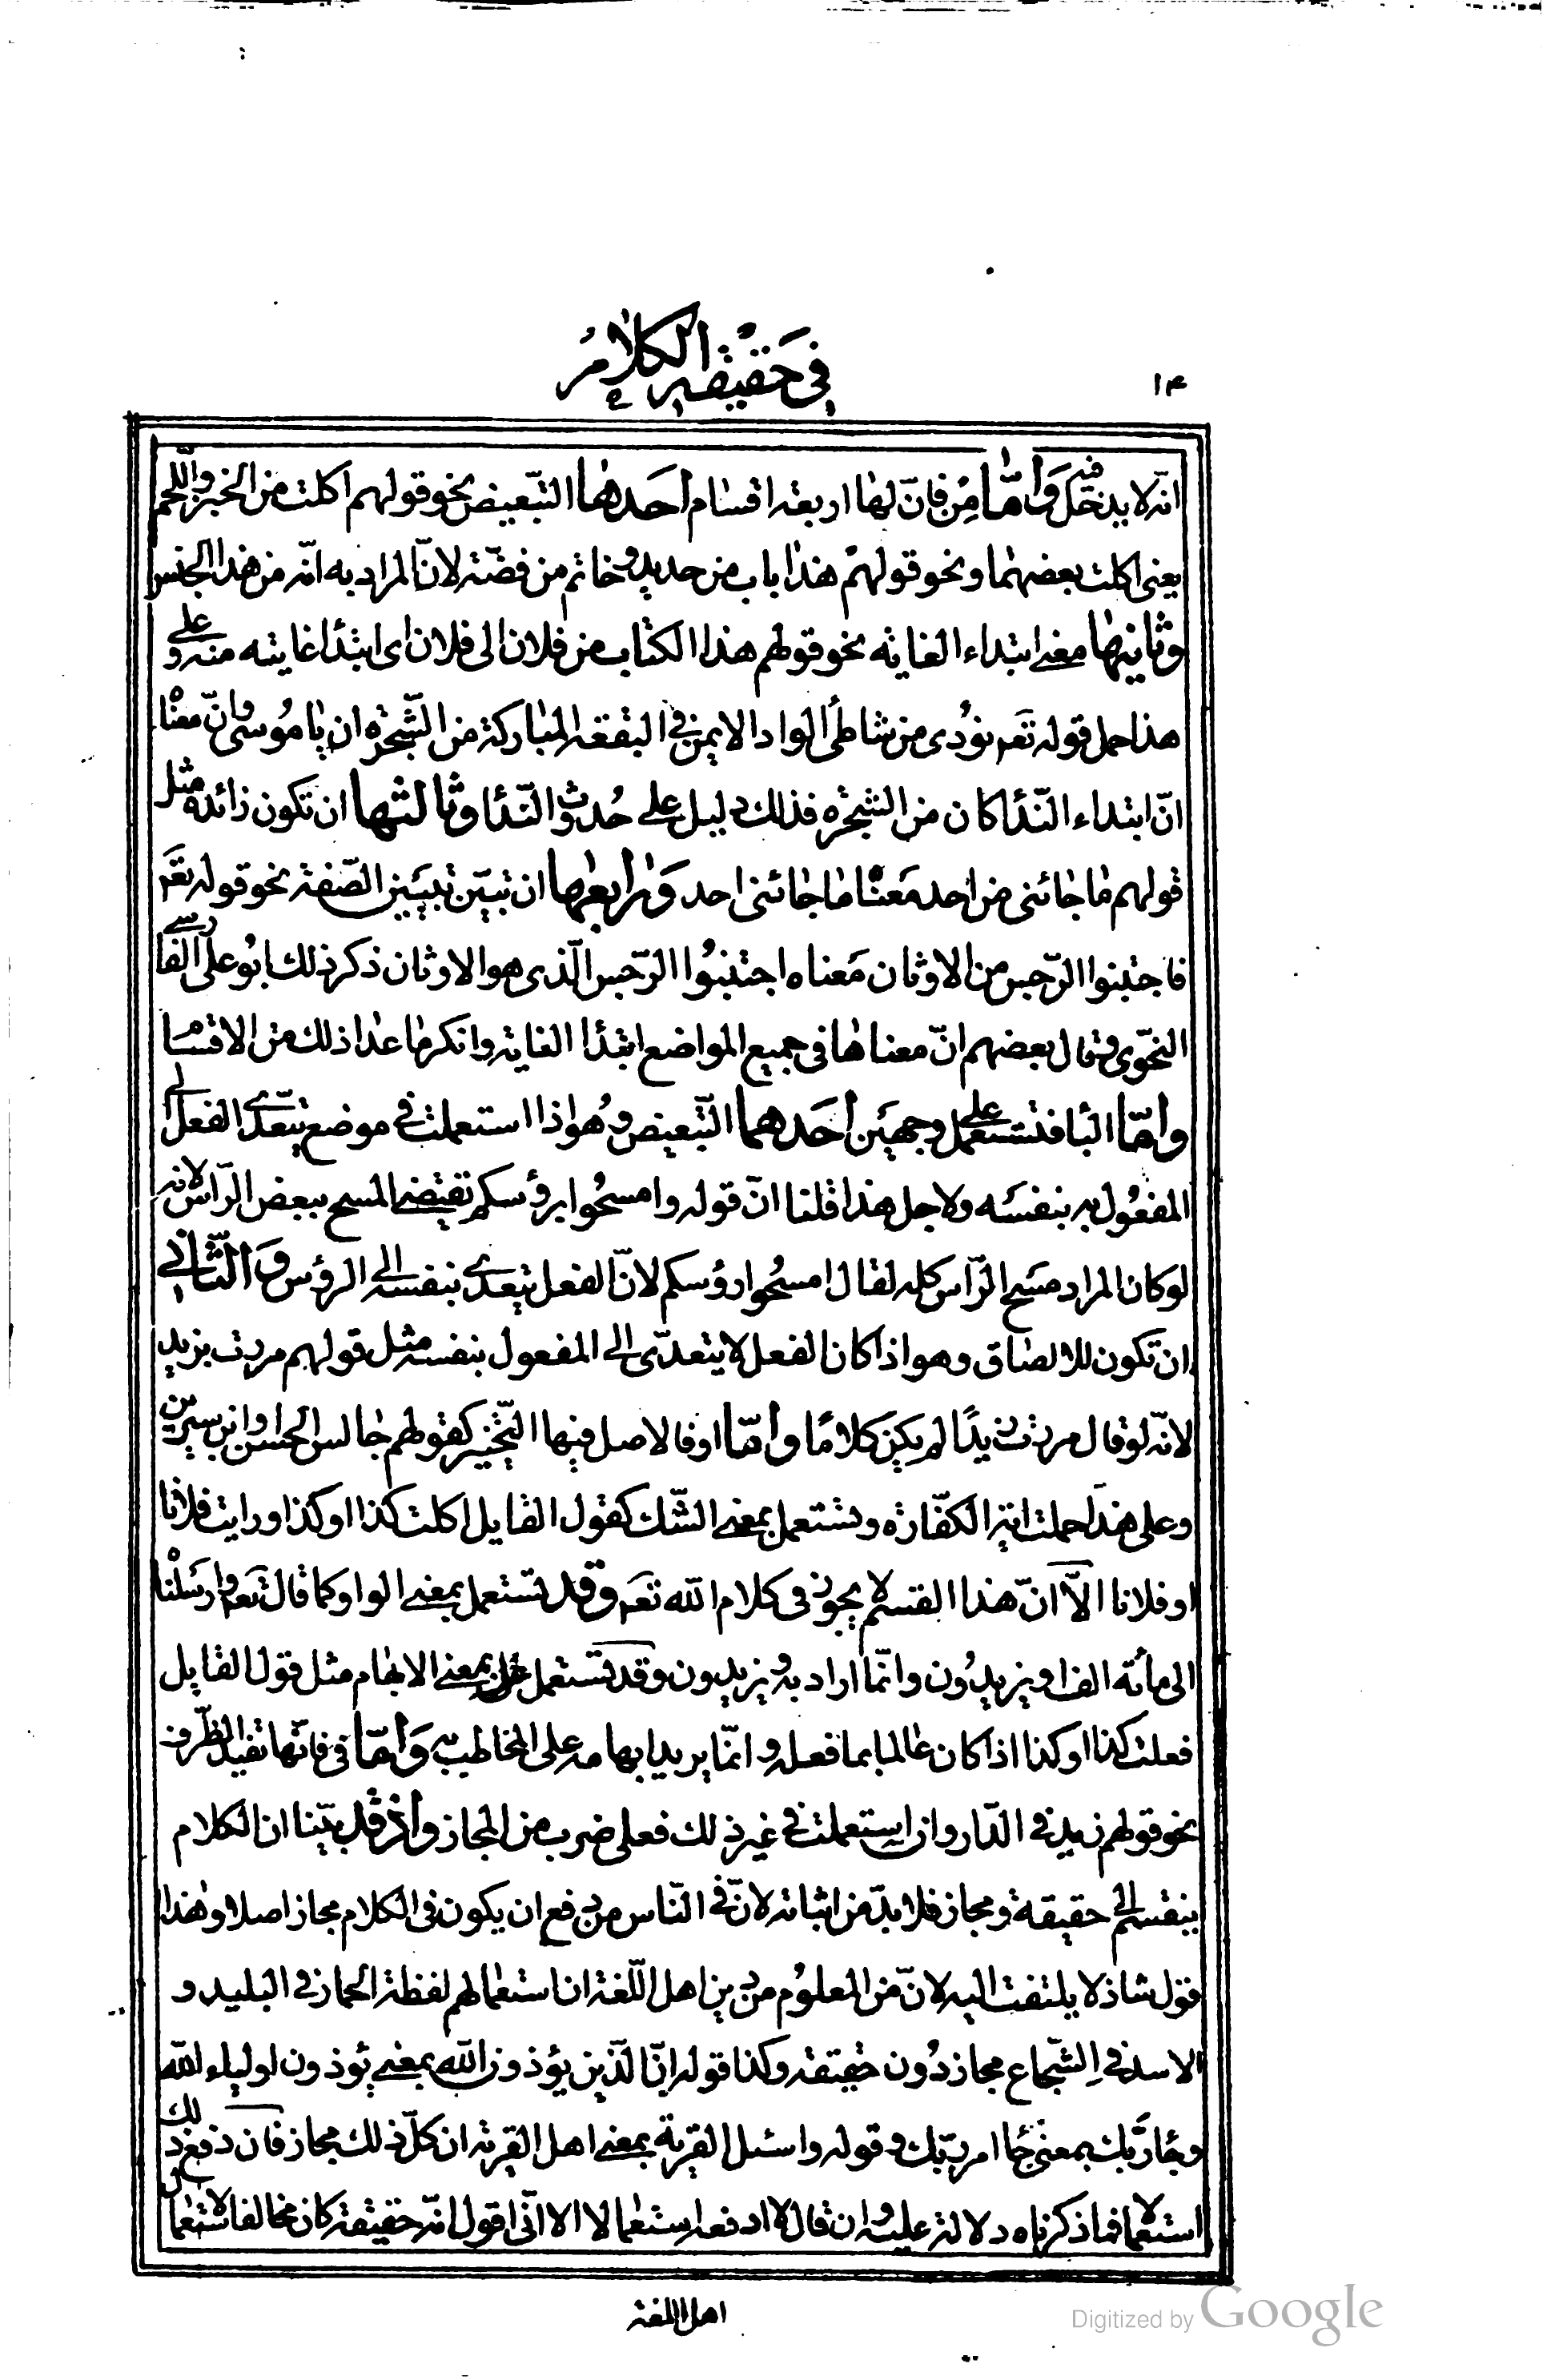 ١٤
في حقيقة الكلام
انّه لا يدخل فيه وَأمّا مِن فانّ لها اربعة اقسام أحَدها التّبعيض نحو قولهم اكلت من الخبز واللّحم
يعنى اكلت بعضهما ونحو قولهم هذا باب من حديد وخاتم من فضّة لانّ المراد به انّه من هذا الجنس
وثانيها معنى ابتداء الغاية نحو قولهم هذا الكتاب من فلان الى فلان اى ابتدأ غايته منه وعلى
هذا حمل قوله تعَم نودُى من شاطئ الواد الايمن في البقعة المباركة من الشّجرة ان يا مُوسى وانّ معناه
انّ ابتداء النّدأ كان من الشجرة فذلك دليل على حُدوث النّدأ وثالثها ان تكون زائدة مثل
قولهم ما جائنى من احد مَعناه ما جائنى احد وَرابعها ان تبيّن تبيَين الصّفة نحو قوله تعَم
فاجتنبوا الرّجس من الاوثان مَعناه اجتنبُوا الرّجس الّذى هو الاوثان ذكر ذلك ابُو علىّ الفارسى
النحّوى وقال بعضهم انّ معناها في جميع المواضع ابتدأ الغاية وانكر ما عدا ذلك من الاقسام
وامّا البا فتستعمل على وجهَين أحَدهما التّبعيض وهُو اذا استعملت في موضع يتعدّى الفعل الى
المفعُول به بنفسَه ولاجل هذا قلنا انّ قوله وامسحُوا برؤسكم يقتضى المسح ببعض الرّأس لانه
لو كان المراد مسَح الرّأس كله لقال امسحُوا رؤسكم لانّ الفعل يتعدّى بنفسه الى الرؤس وَالثّانى
ان تكون للالصاق وهو اذا كان الفعل لا يتعدّى الى المفعول بنفسه مثل قولهم مررت بزيد
لانّه لو قال مررت زيدًا لم يكن كلامًا وأمّا او فالاصل فيها التّخيير كقولهم جالس الحسن او ابن سيرين
وعلى هذا حملت اية الكفّارة وتستعمل بمعنى الشّك كقول القايل اكلت كذا او كذا ورايت فلانا
او فلانا الّا انّ هذا القسم لا يجوز في كلام الله تعَم وقد تستعمل بمعنى الواو كما قال تعَم وارسَلْناه
الى مأئة الف او يزيدُون وانّما اراد به ويزيدون وقد تستعمل بمعنى الابهام مثل قول القايل
فعلت كذا او كذا اذا كان عالما بما فعله وانمّا يريد ابهامه على المخاطب به وَأمّا في فانّها تفيد الظّرف
نحو قولهم زيد في الدّار وان استعملت في غير ذلك فعلى ضرب من المجاز وأذ قد بيّنا ان الكلام
ينقسم الى حقيقة ومجاز فلا بدّ من اثباته لانّ في النّاس من دفع ان يكون في الكلام مجاز اصلا وهذا
قول شاذ لا يلتفت اليه لانّ من المعلوُم من دين اهل اللّغة ان استعمالهم لفظة الحمار في البليد و
الاسد في الشّجاع مجاز دُون حقيقة وكذا قوله انّ الّذين يؤذون الله بمعنى يؤذون اولياء الله
وجَاء ربّك بمعنى جأ امر ربّك وقوله واسئل القرية بمعنى اهل القرية ان كلّ ذلك مجاز فان دفع ذلك
استعمالا فما ذكرناه دلالة عليه وان قال لا ادفعه استعمالا الا انّى اقول انّه حقيقة كان مخالفا لاستعمال
اهل اللغة
Digitized by Google